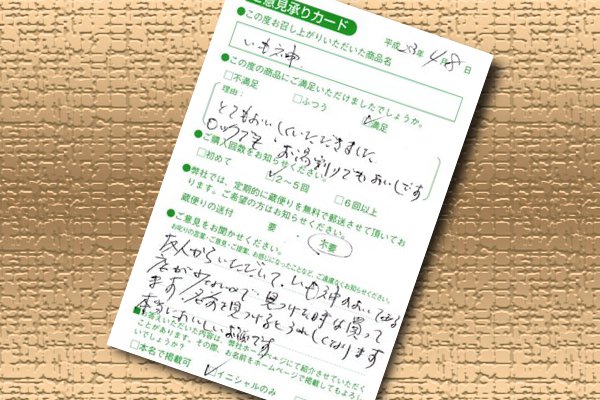 ご意見承りカード
平成23年4月8日
●この度お召し上がりいただいた商品名
いも神
●この度の商品にご満足いただけましたでしょうか。
□不満足 □ふつう ☑満足
理由：
とてもおいしくいただきました
ロックでも、お湯割りでもおいしいです
●ご購入回数をお知らせください。
□初めて ☑2～5回 □6回以上
●弊社では、定期的に蔵便りを無料で郵送させて頂いてお
ります。ご希望の方はお知らせください。
蔵便りの送付 要 不要
●ご意見をお聞かせください。
お叱りの言葉・ご意見・ご提案、お感じになったことなど、ご遠慮なくお知らせください。
友人からいただいて、いも神のおいてある
店が少ないので、見つけた時な買って
ます。店で見つけるとうれしくなります
本当においしいお酒です
■お答えいただいた内容は、弊社ホームページにて紹介させていただく
ことがあります。その際、お名前をホームページで掲載してもよろし
いでしょうか？
□本名で掲載可 ☑イニシャルのみ